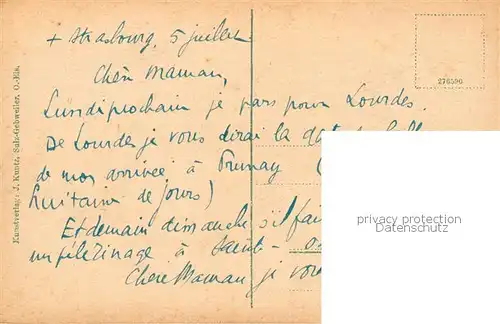 + Strasbourg, 5 juillet
Chère Maman,
Lundi prochain je pars pour Lourdes.
De Lourdes je vous dirai la date
de mon arrivée à Prunay (
huitaine de jours)
Et demain dimanche s'il fai
un pèlerinage à Sainte-
Chère Maman je
Kunstverlag: J. Kuntz, Sulz-Gebweiler, O.-Els.
276590
privacy protection
Datenschutz